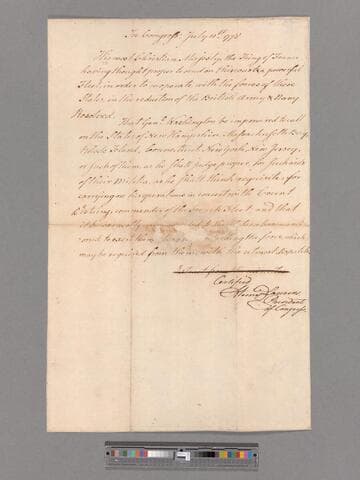 In Congress July 11th 1778
His most Christian Majesty the King of France
having thought proper to send an powerful
Fleet in order to cooperate with the forces of these
States, in the reduction of the British Army & Navy
Resolved.
That Genl. Washington be impowered to call
on the States of New Hampshire, Massachusetts Bay,
Rhode Island, Connecticut, New York, New Jersey,
or such of them as he shall judge proper, for such aids
of their Militia, as he shall think requisite, for
carrying on his operations in concert with Count
D'Estaing, commander of the French Fleet and that
it be earnestly to the
and to exert them the force which
may be required from them, with the utmost dispatch
Certified
Henry Laurens
President
of Congress